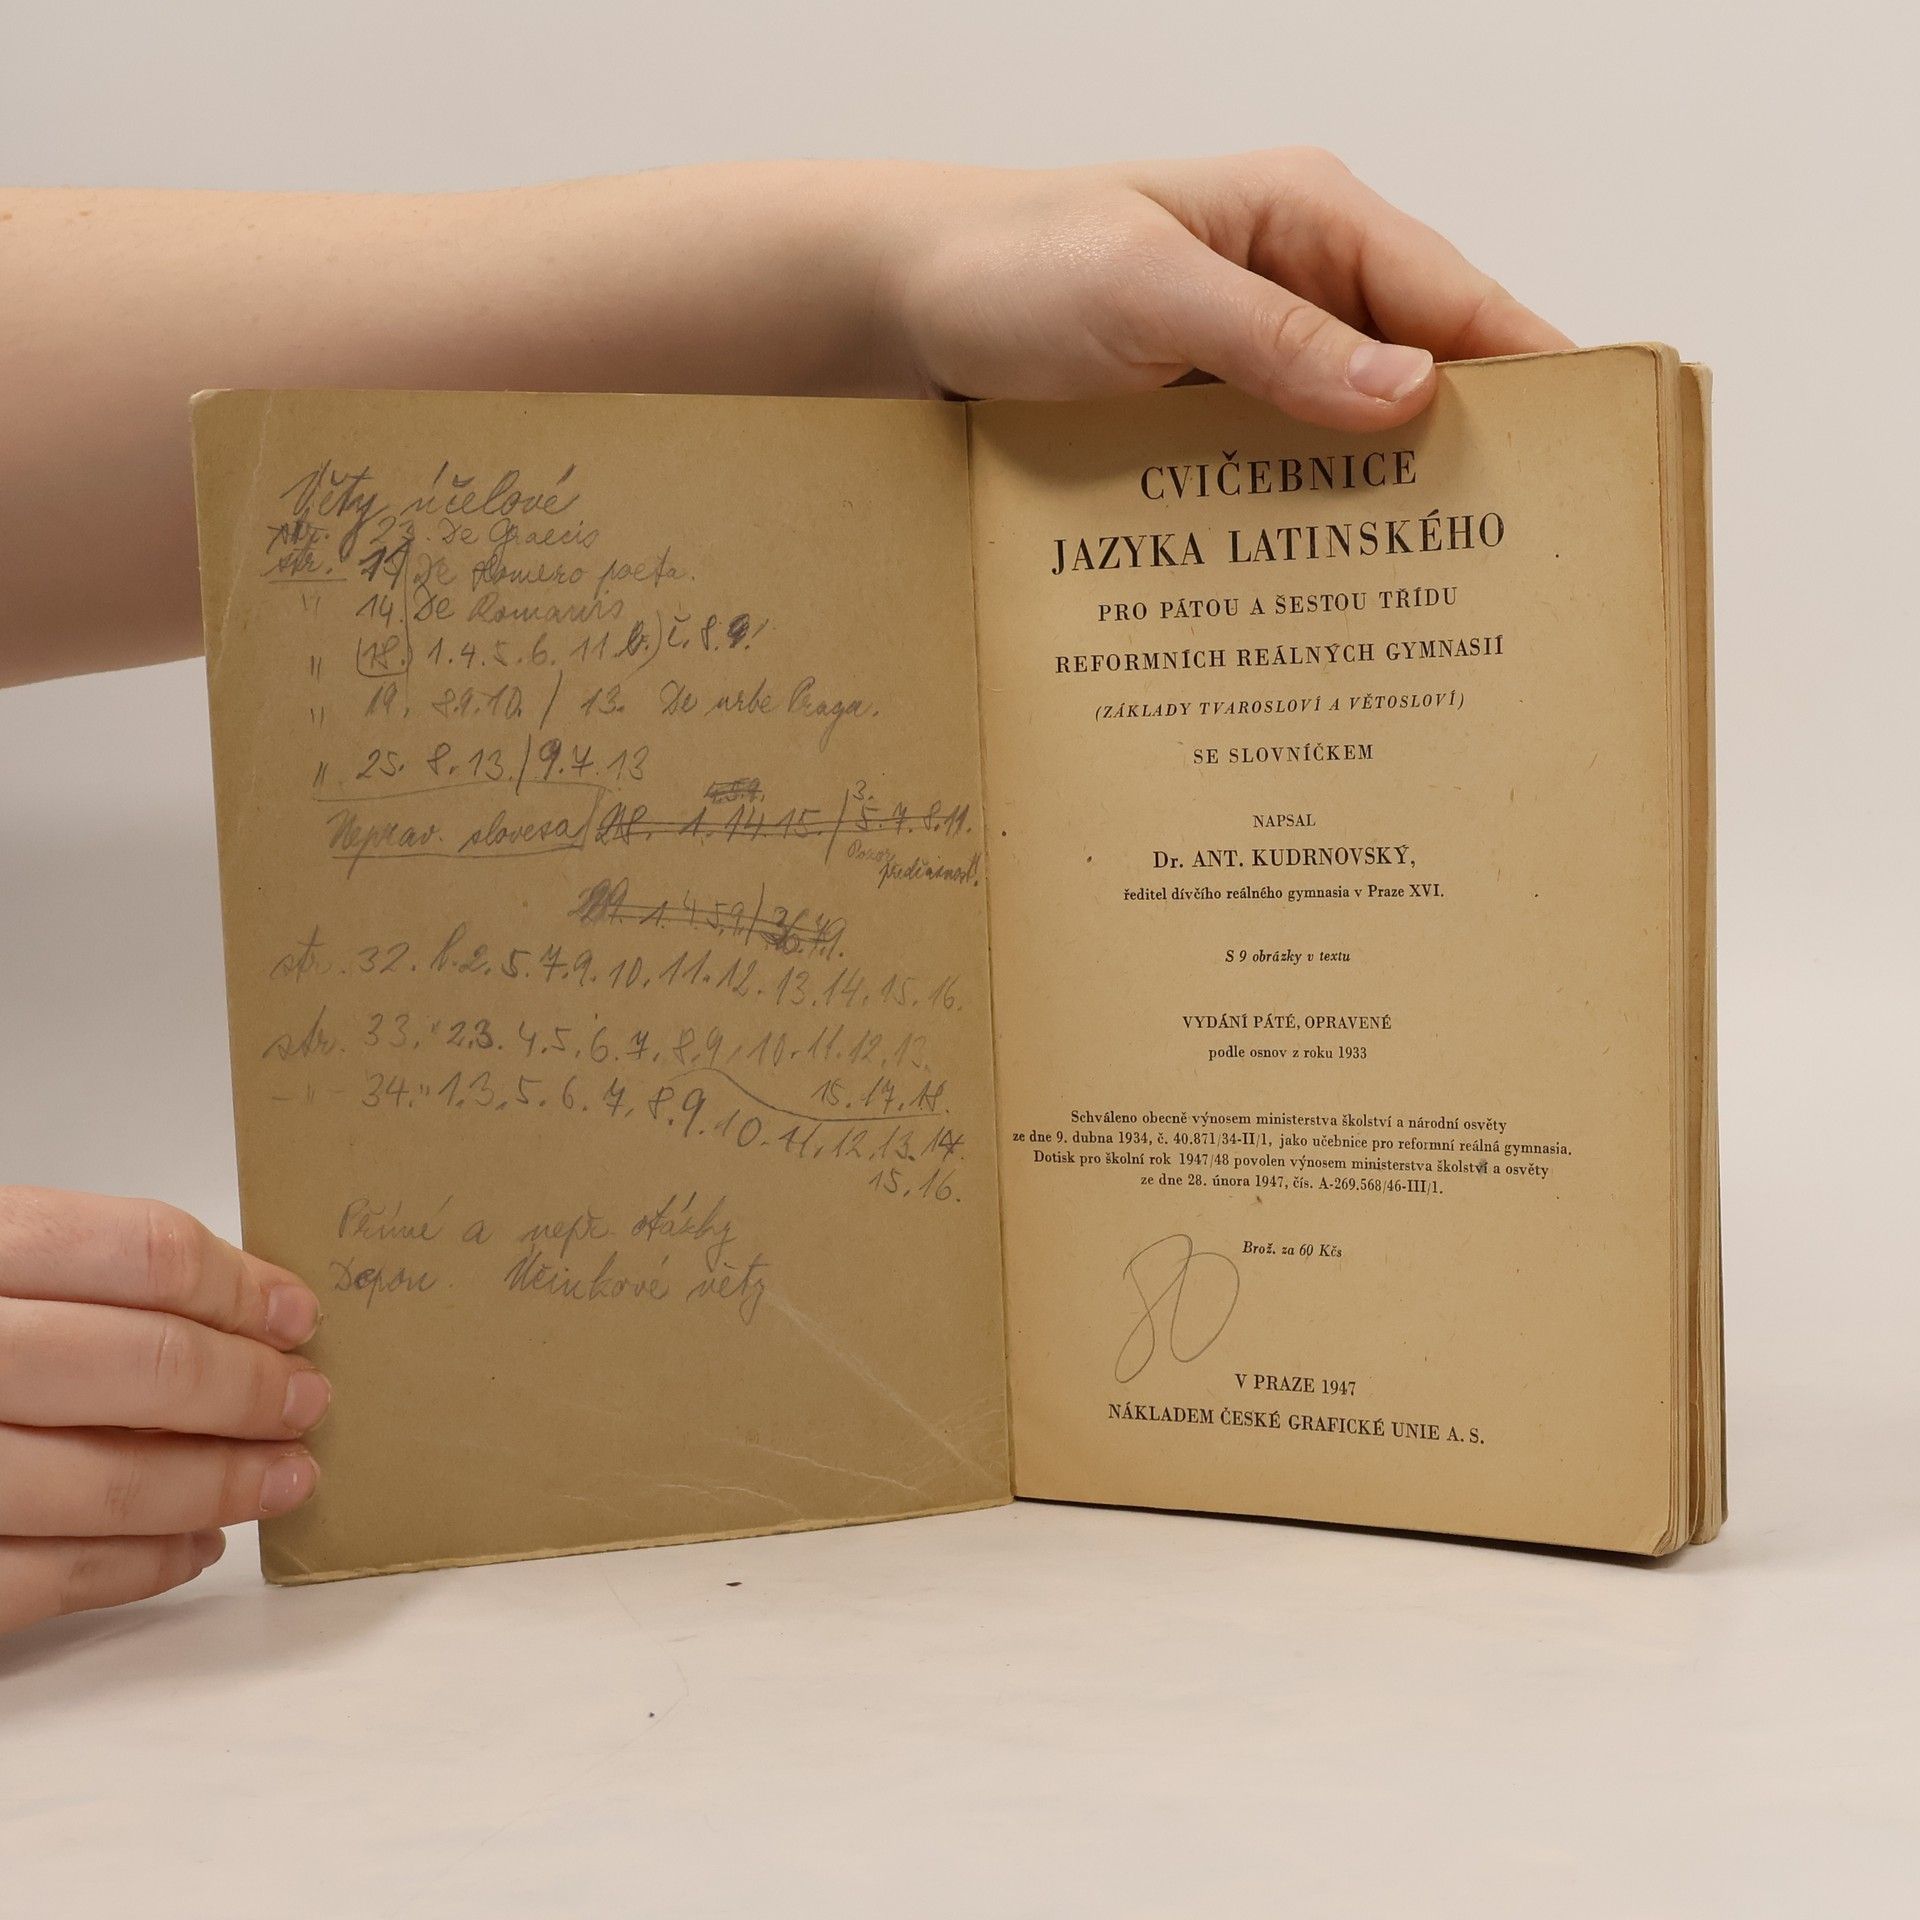 Věty účelové
str. 23. De Graecis
str. De Homero poeta.
" 14. De Romanis
" (18.) 1.4.5.6. 11 b.) č. 8.9.
" 19. 8.9.10. / 13. De urbe Praga.
" 25. 8.13./9.7.13
4.5.9. 3.
Neprav. slovesa 28. 1. 14.15. / 5.7.8.11.
Pozor
předčasnost!
29. 1. 4.5.9./
str. 32. b.2.5.7.9.10.11.12.13.14.15.16.
str. 33. " 2.3.4.5.6.7.8.9.10.11.12.13.
— " — 34. " 1.3.5.6.7.8.9.10.11.12.13.14.
15.17.18.
15.16.
Přímé a nepř. otázky
Depon. Účinkové věty
CVIČEBNICE
JAZYKA LATINSKÉHO
PRO PÁTOU A ŠESTOU TŘÍDU
REFORMNÍCH REÁLNÝCH GYMNASIÍ
(ZÁKLADY TVAROSLOVÍ A VĚTOSLOVÍ)
SE SLOVNÍČKEM
NAPSAL
Dr. ANT. KUDRNOVSKÝ,
ředitel dívčího reálného gymnasia v Praze XVI.
S 9 obrázky v textu
VYDÁNÍ PÁTÉ, OPRAVENÉ
podle osnov z roku 1933
Schváleno obecně výnosem ministerstva školství a národní osvěty
ze dne 9. dubna 1934, č. 40.871/34-II/1, jako učebnice pro reformní reálná gymnasia.
Dotisk pro školní rok 1947/48 povolen výnosem ministerstva školství a osvěty
ze dne 28. února 1947, čís. A-269.568/46-III/1.
Brož. za 60 Kčs
80
V PRAZE 1947
NÁKLADEM ČESKÉ GRAFICKÉ UNIE A. S.